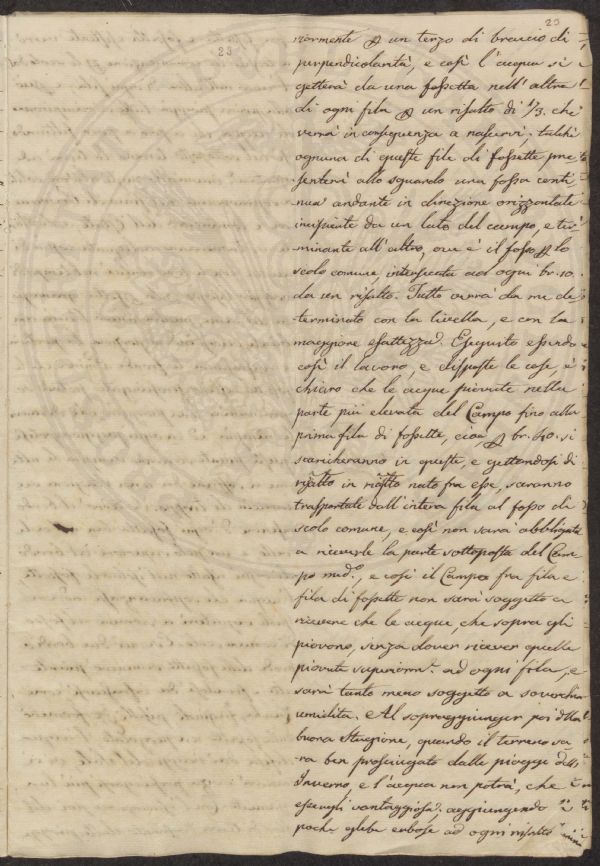 20
23
riormente p un terzo di braccio di
perpendicolarità, e così l'acqua si
getterà da una fossetta nell'altra
di ogni fila p un risalto di 1/3. che
verrà in conseguenza a nascervi; talchè
ognuna di queste file di fossette pre
senterà allo sguardo una fossa conti
nua andante in direzione orizzontale
incipiente da un lato del campo, e ter
minante all'altro, ove è il fosso p lo
scolo comune, intersecata ad ogni br. 10.
da un risalto. Tutto verrà da me de
terminato con la livella, e con la
maggiore esattezza. Eseguito essendo
così il lavoro, e disposte le cose, è
chiaro che le acque piovute nella
parte più elevata del Campo fino alla
prima fila di fossette, cioè p br. 40. si
scaricheranno in queste, e gettandosi di
risalto in risalto nato fra esse, saranno
trasportate dall'intera fila al fosso di
scolo comune, e così non sarà obbligata
a riceverle la parte sottoposta del Cam
po med.o, e così il Campo fra fila e
fila di fossette non sarà soggetto a
ricevere che le acque, che sopra gli
piovono, senza dover ricever quelle
piovute superiorm.e ad ogni fila, e
sarà tanto meno soggetto a soverchia
umilita. Al sopraggiunger poi dlla
buona Stagione, quando il terreno sa
rà ben prosciugato dalle piogge dell'
Inverno, e l'acqua non potrà, che
essergli vantaggiosa, aggiungendo
poche glebe erbose ad ogni risalto